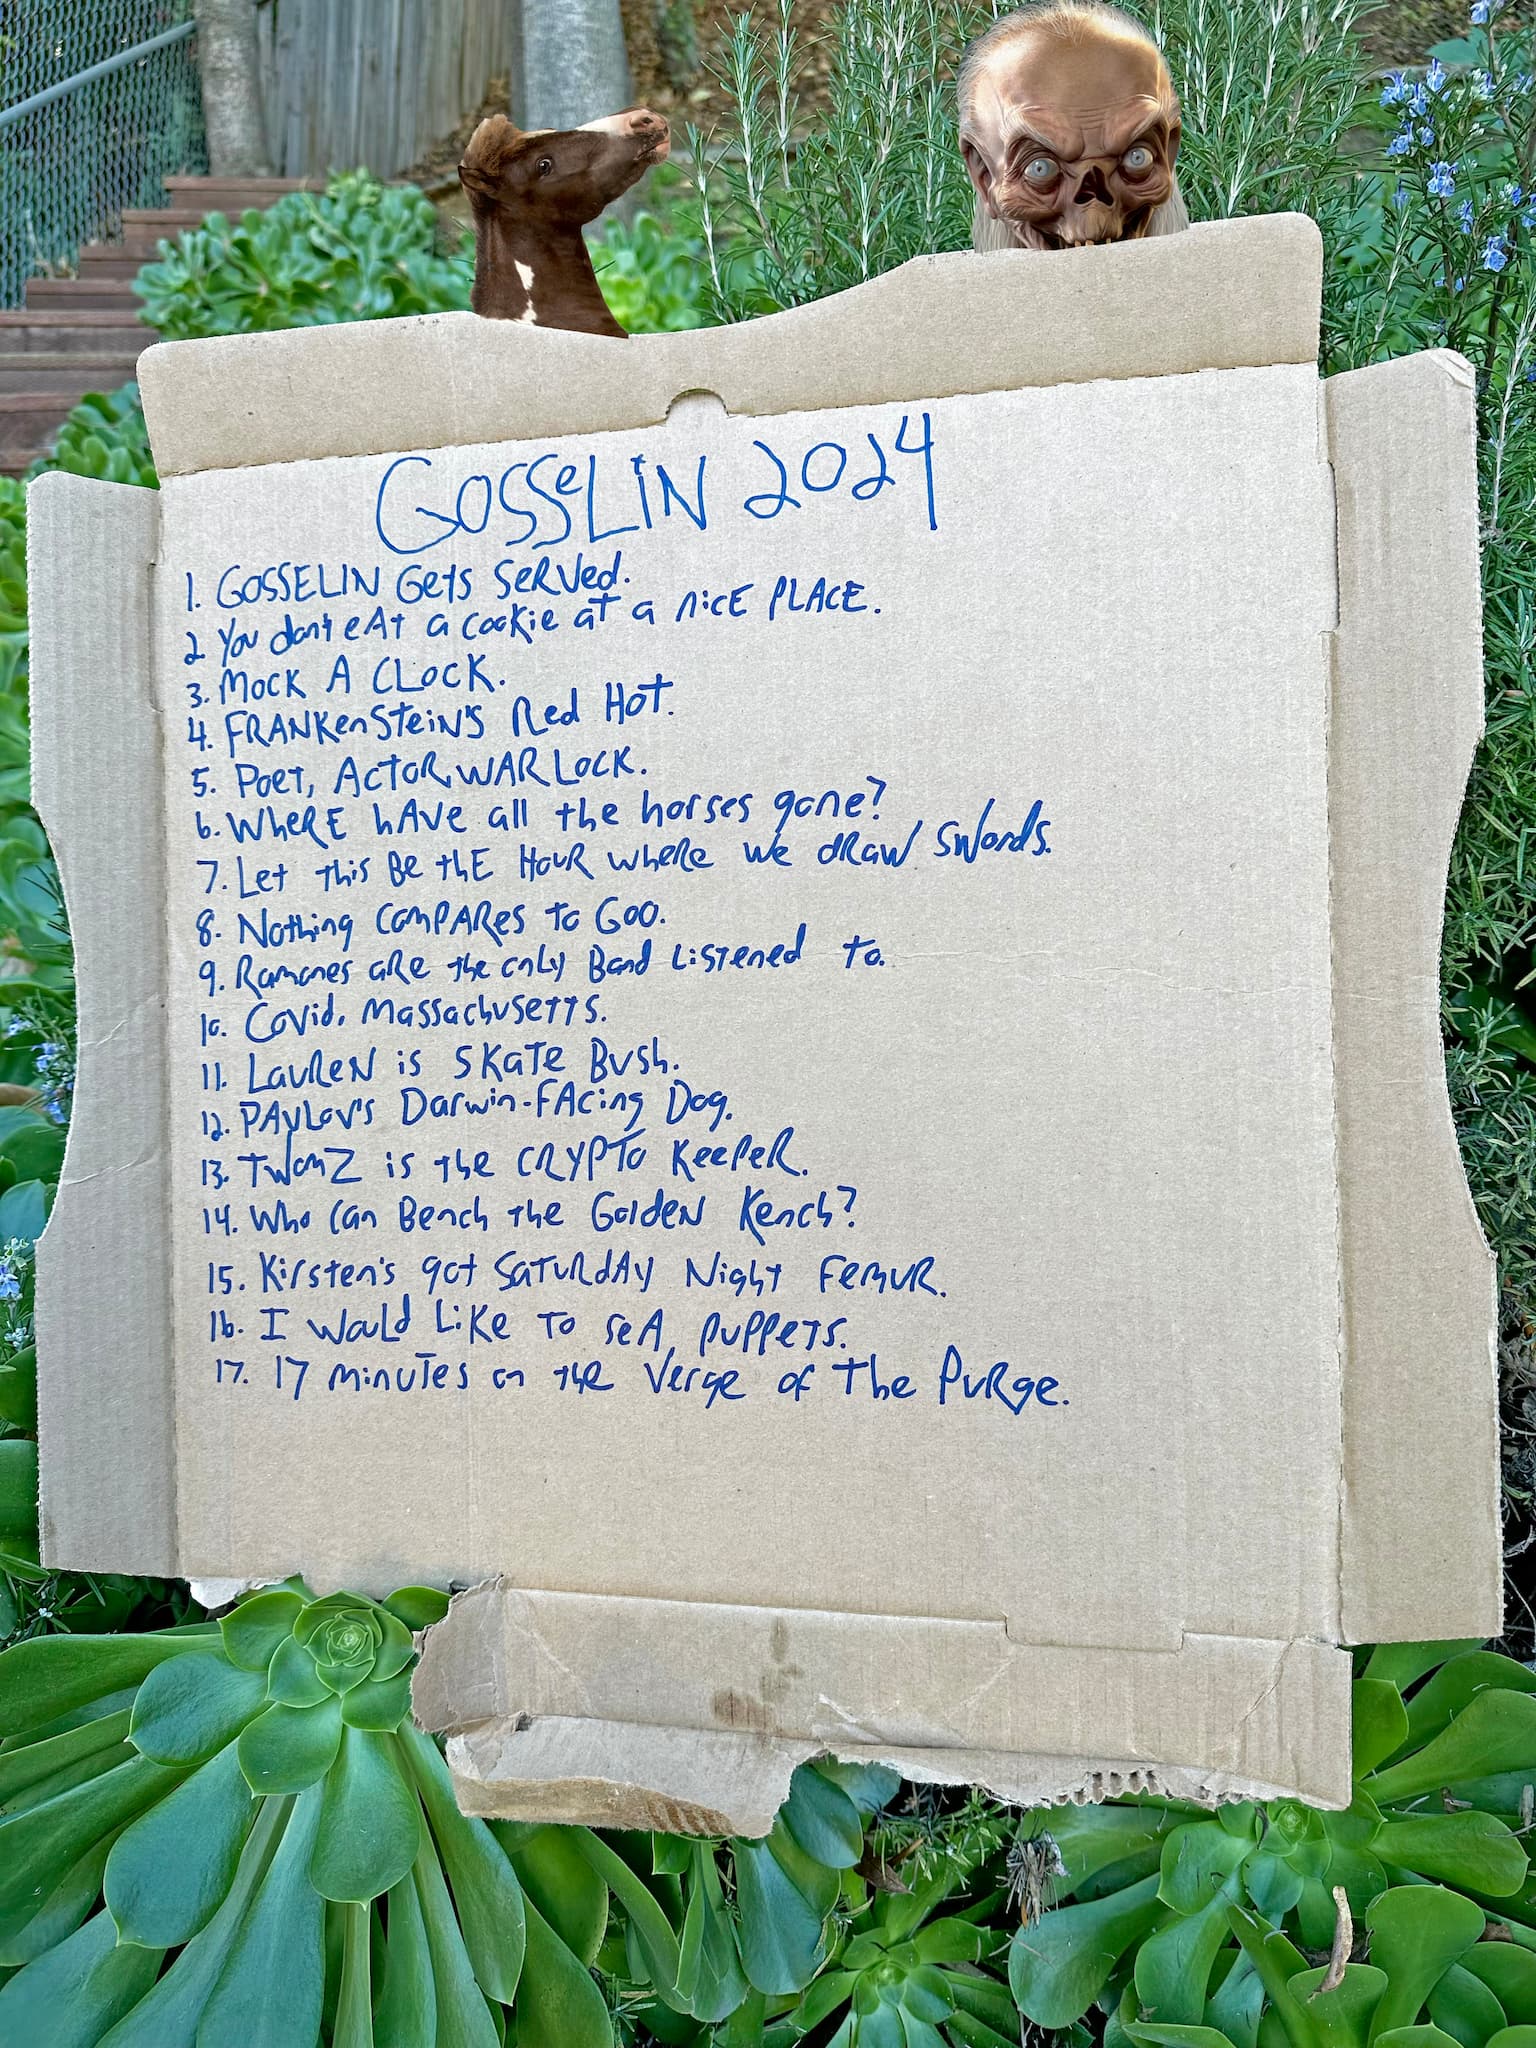 GOSSELIN 2024
1. GOSSELIN Gets SERVed.
2. You don't eAt a cookie at a nicE PLACE.
3. Mock A CLOCK.
4. FRANKenSteiN'S Red HOT.
5. Poet, ACTOR, WARLOCK.
6. WheRE hAVe all the horses gone?
7. Let this Be thE HouR wheRe we dRAW Swords.
8. Nothing COMPARes to GOO.
9. Ramones aRe the only Band Listened to.
10. Covid, Massachusetts.
11. LauReN is SKaTe Bush.
12. PAVLov's Darwin-FAcing Dog.
13. TwanZ is the CRYPTO KeePeR.
14. Who Can Bench the GoldeN Kench?
15. Kirsten's got SaTURdAy Night FemuR.
16. I would LiKe To seA puppets.
17. 17 minuTes on the Verge of The PuRge.